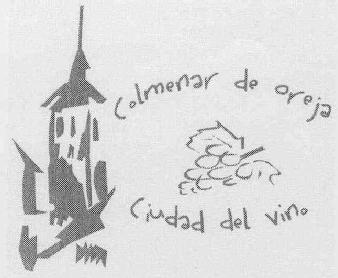 Colmenar de oreja
Ciudad del vino